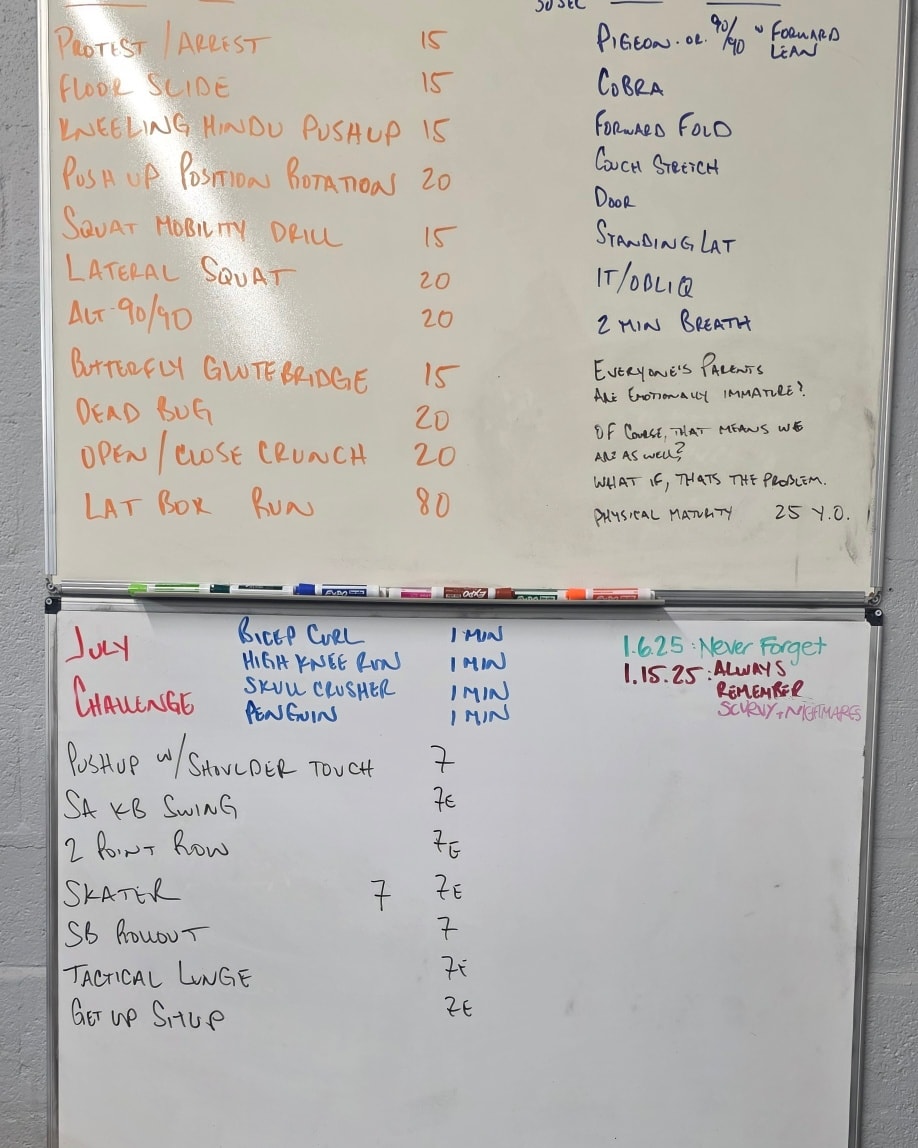 30 SEC
PROTEST / ARREST 15
FLOOR SLIDE 15
KNEELING HINDU PUSHUP 15
PUSH UP POSITION ROTATION 20
SQUAT MOBILITY DRILL 15
LATERAL SQUAT 20
ALT 90/90 20
BUTTERFLY GLUTEBRIDGE 15
DEAD BUG 20
OPEN / CLOSE CRUNCH 20
LAT BOX RUN 80
PIGEON OR 90/90 W FORWARD
LEAN
COBRA
FORWARD FOLD
COUCH STRETCH
DOOR
STANDING LAT
IT/OBLIQ
2 MIN BREATH
EVERYONE'S PARENTS
ARE EMOTIONALLY IMMATURE?
OF COURSE, THAT MEANS WE
ARE AS WELL?
WHAT IF, THATS THE PROBLEM.
PHYSICAL MATURITY 25 Y.O.
EXPO
EXPO
JULY
CHALLENGE
BICEP CURL 1 MIN
HIGH KNEE RUN 1 MIN
SKULL CRUSHER 1 MIN
PENGUIN 1 MIN
1.6.25: Never Forget
1.15.25: ALWAYS
REMEMBER
SCURVY + NIGHTMARES
PUSHUP W/ SHOULDER TOUCH 7
SA KB SWING 7E
2 POINT ROW 7E
SKATER 7 7E
SB ROLLOUT 7
TACTICAL LUNGE 7E
GET UP SITUP 7E